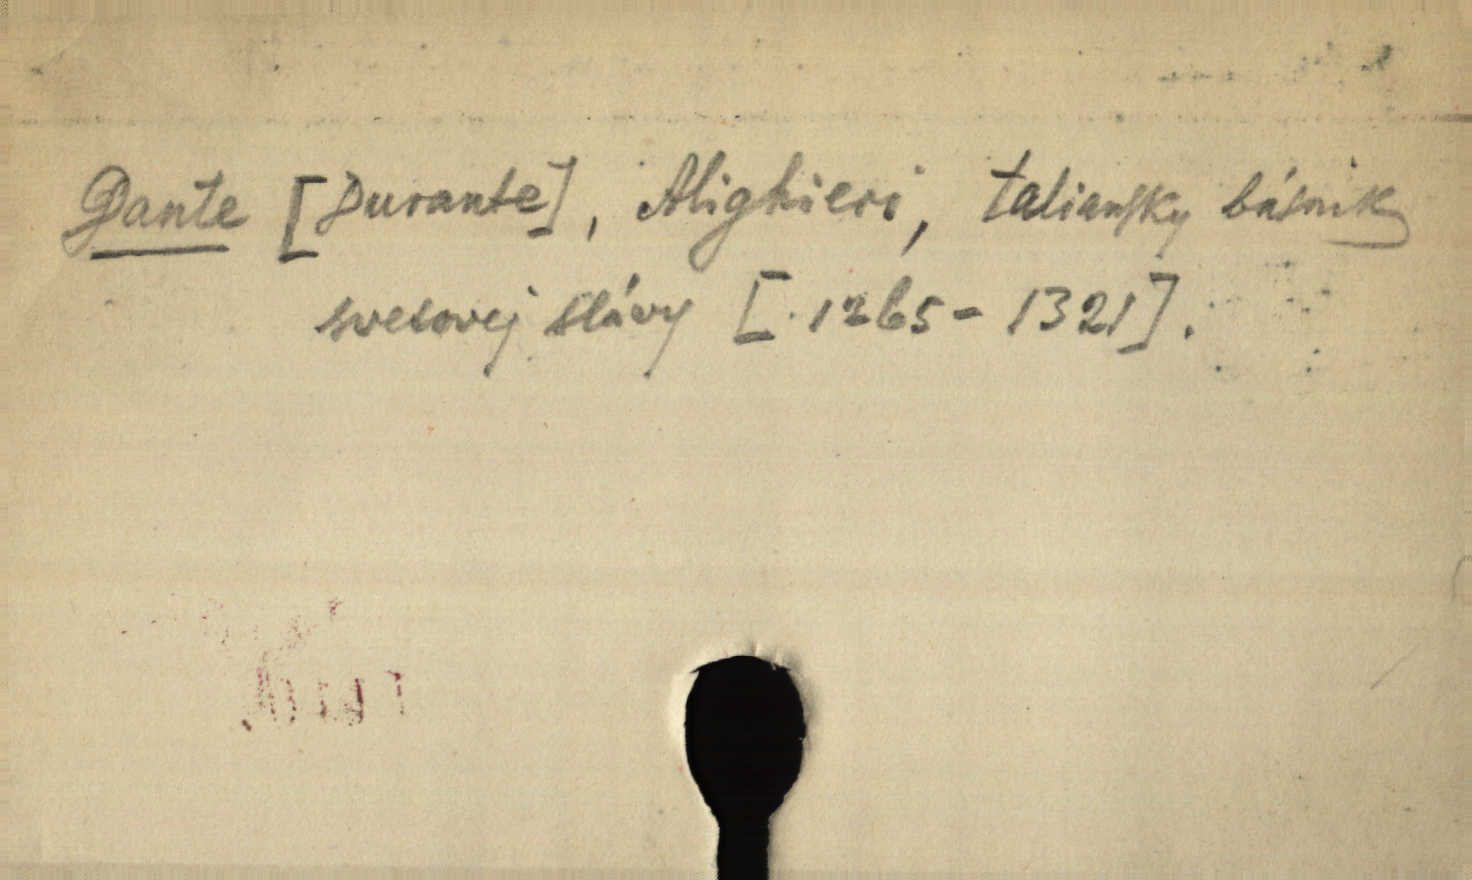 Dante [Durante], Alighieri, taliansky básnik
svetovej slávy [1265-1321].